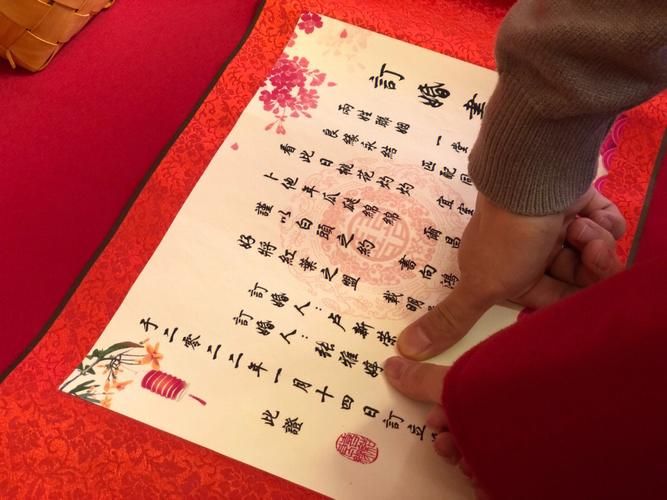 訂婚書
兩姓聯姻 一堂
良緣永結 匹配同
看此日桃花灼灼 宜室
卜他年瓜瓞綿綿 爾昌
謹以白頭之約 書向鴻
好將紅葉之盟 載明
訂婚人：卢新荣
訂婚人：张雅婷
于二零二二年一月十四日訂立
此證